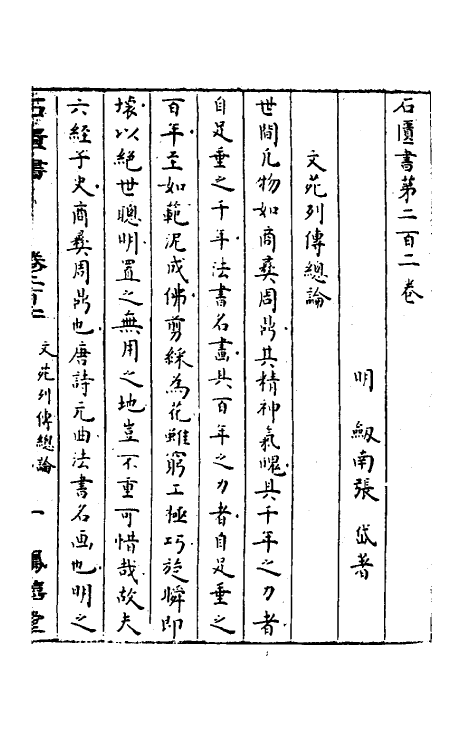 石匱書第二百二卷
明 劔南張 岱著
文苑列傳總論
世間凡物如商彝周鼎其精神氣魄具千年之力者
自足垂之千年法書名畫具百年之力者自足垂之
百年至如範泥成佛剪綵為花雖窮工極巧旋瞬即
壞以絕世聰明置之無用之地豈不重可惜哉故夫
六經子史商彝周鼎也唐詩元曲法書名画也明之
石匱書 卷二百二 文苑列傳總論 一 鳳嬉堂